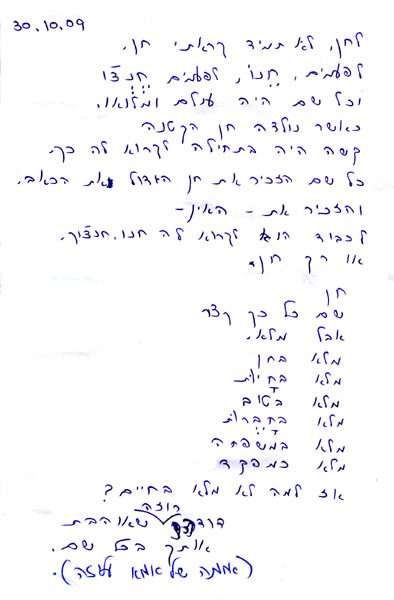 30.10.09
לחן, לא תמיד קראתי חן.
לפעמים, חנוֹ, לפעמים חָנְצ'וֹ
וכל שם היה עולם ומלואו.
כאשר נולדה חן הקטנה
קשה היה בתחילה לקרוא לה כך.
כל שם הזכיר את חן הגדול את הכאב.
והזכיר את - האין -
לכבוד הוא לקרוא לה חנו, חנצ'וק.
או רק חן.
חן
שם כל כך קצר
אבל מלא.
מלא בחן
מלא בחיות
מלא בטוב
מלא בחברות
מלא במשפחה
מלא כמפקד
אז למה לא מלא בחיים?
רוזה
דודה שאוהבת
אותך בכל שם.
(אמתה של אמא עליזה).